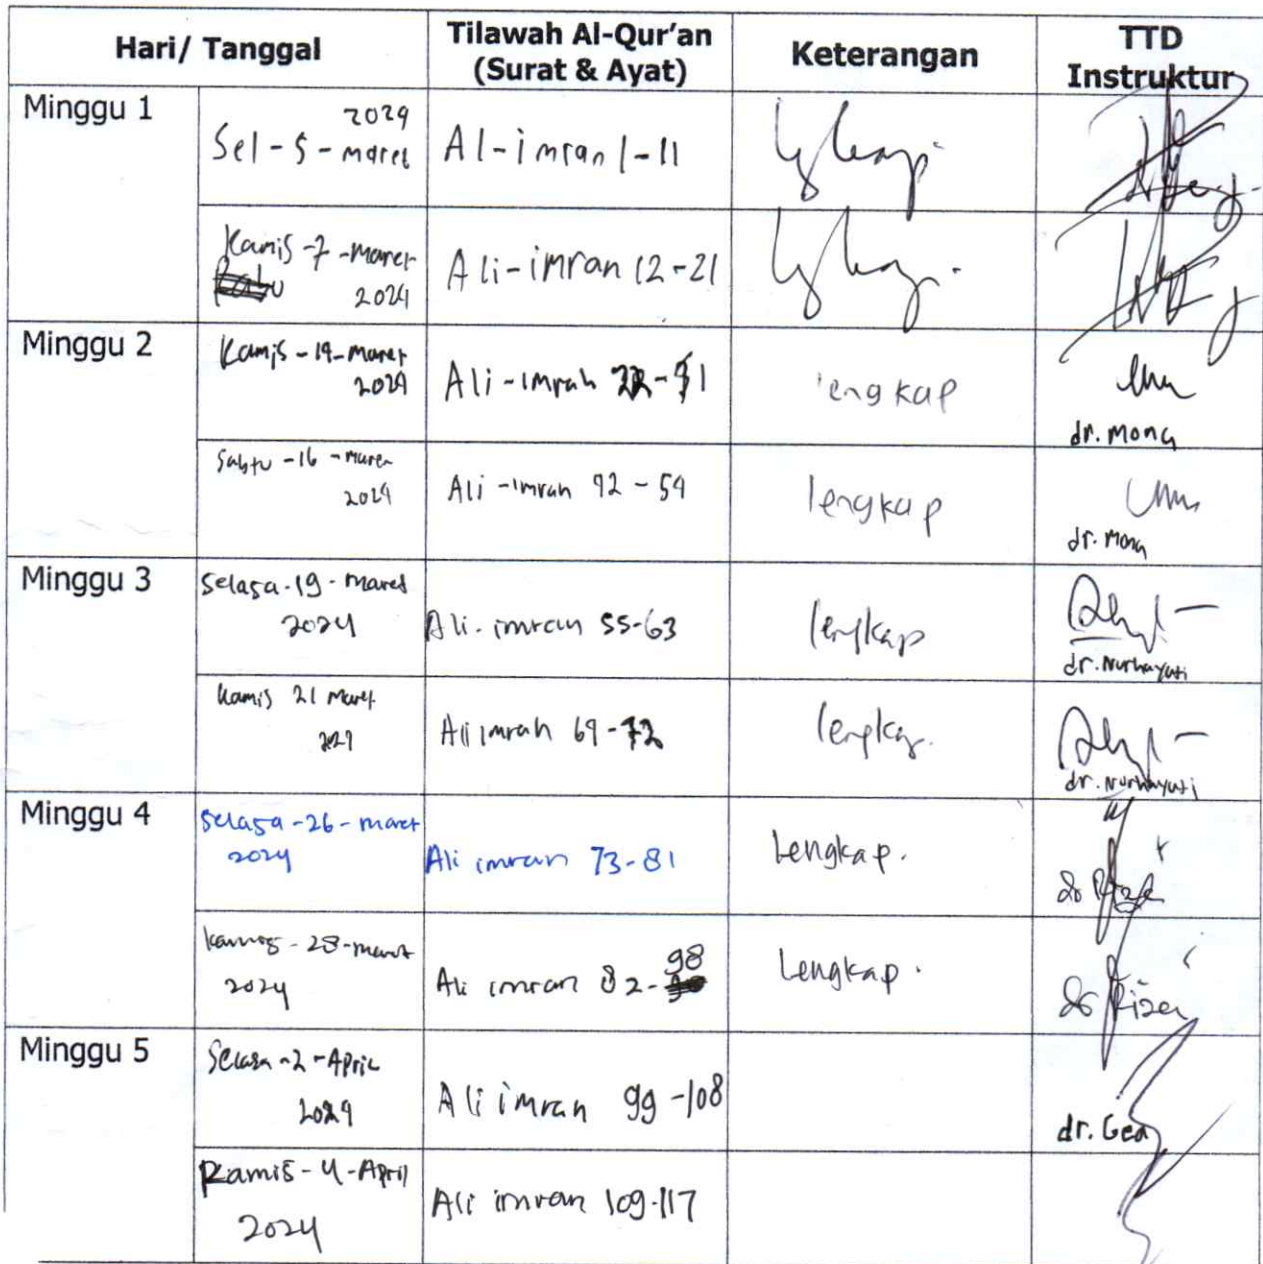 Hari/ Tanggal
Tilawah Al-Qur'an
(Surat & Ayat)
Keterangan
TTD
Instruktur
Minggu 1
2024
Sel - 5 - maret
Al-imran 1-11
Kamis -7 -maret
2024
Ali-imran 12-21
Minggu 2
Kamis - 14- maret
2024
Ali-imrah
lengkap
dr. Mona
Sabtu -16 - maret
2024
Ali-imran 42 - 54
lengkap
dr. Mona
Minggu 3
Selasa-19- maret
2024
Ali-imran 55-63
lengkap
dr. Nurhayati
kamis 21 maret
Ali imrah 64-72
lengkap
dr. Nurhayati
Minggu 4
Selasa -26- maret
2024
Ali imran 73-81
Lengkap.
kamis - 28-maret
2024
98
Ali imran 82-
Lengkap.
dr Rizer
Minggu 5
Selasa -2 -April
2024
Ali imran 99 -108
dr. Gea
Kamis - 4 -April
2024
Ali imran 109-117